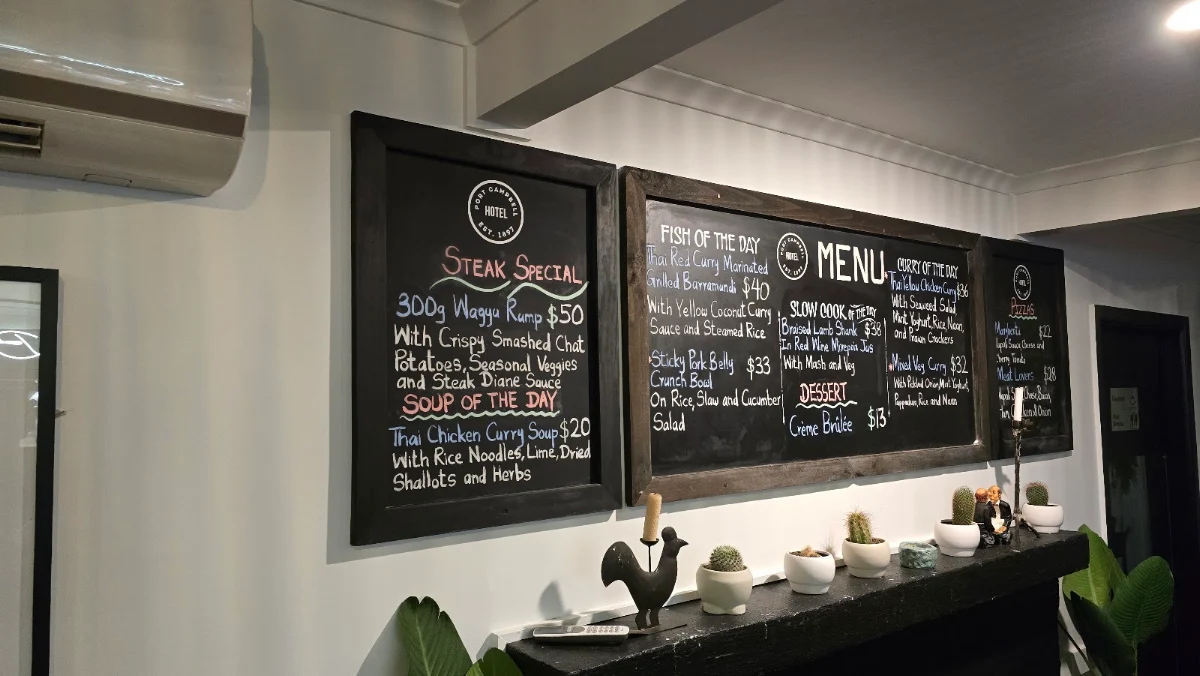 PORT CAMPBELL
HOTEL
EST. 1897
STEAK SPECIAL
300g Wagyu Rump $50
With Crispy Smashed Chat
Potatoes, Seasonal Veggies
and Steak Diane Sauce
SOUP OF THE DAY
Thai Chicken Curry Soup $20
With Rice Noodles, Lime, Dried
Shallots and Herbs
FISH OF THE DAY
Thai Red Curry Marinated
Grilled Barramundi $40
With Yellow Coconut Curry
Sauce and Steamed Rice
Sticky Pork Belly $33
Crunch Bowl
On Rice, Slaw and Cucumber
Salad
HOTEL
MENU
SLOW COOK OF THE DAY
Braised Lamb Shank $38
In Red Wine Jus
With Mash and Veg
DESSERT
Crème Brûlée $13
CURRY OF THE DAY
Thai Yellow Chicken Curry $36
With Seaweed Salad,
Mint Yoghurt, Rice, Naan,
and Prawn Crackers
Mixed Veg Curry $32
With Pickled Onion, Mint Yoghurt,
Pappadum, Rice and Naan
HOTEL
PIZZAS
Margherita $22
Sauce, Cheese and
Meat Lovers $28
Onion